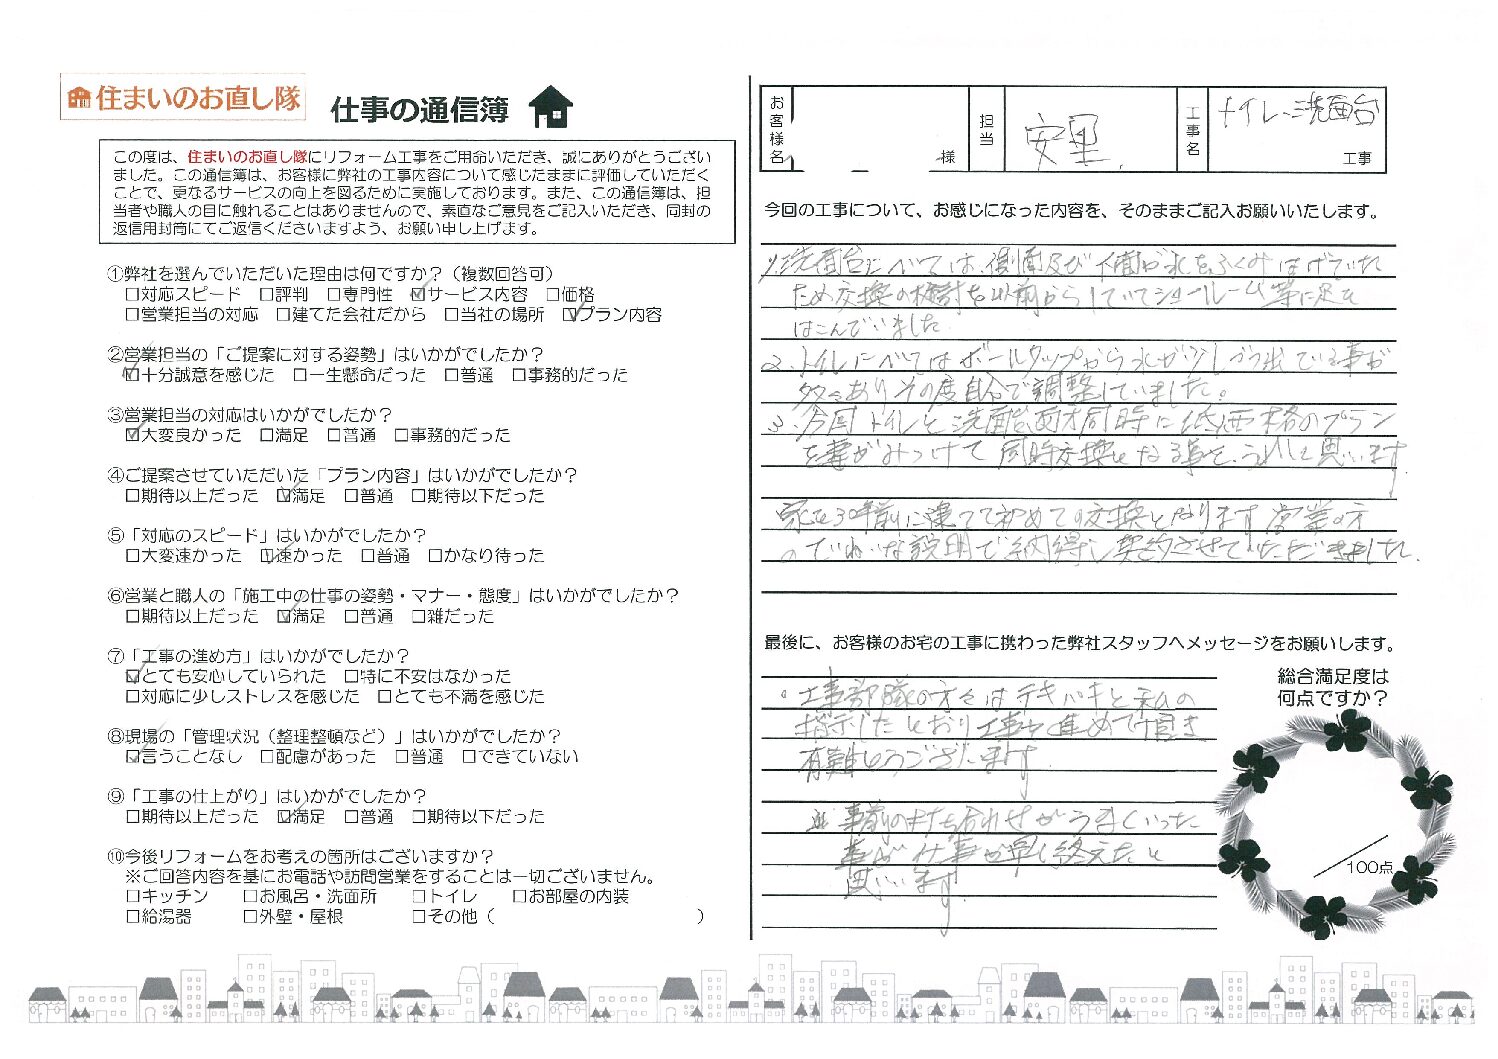 住まいのお直し隊
仕事の通信簿
この度は、住まいのお直し隊にリフォーム工事をご用命いただき、誠にありがとうござい
ました。この通信簿は、お客様に弊社の工事内容について感じたままに評価していただく
ことで、更なるサービスの向上を図るために実施しております。また、この通信簿は、担
当者や職人の目に触れることはありませんので、素直なご意見をご記入いただき、同封の
返信用封筒にてご返信くださいますよう、お願い申し上げます。
①弊社を選んでいただいた理由は何ですか？（複数回答可）
□対応スピード □評判 □専門性 ☑サービス内容 □価格
□営業担当の対応 □建てた会社だから □当社の場所 ☑プラン内容
②営業担当の「ご提案に対する姿勢」はいかがでしたか？
☑十分誠意を感じた □一生懸命だった □普通 □事務的だった
③営業担当の対応はいかがでしたか？
☑大変良かった □満足 □普通 □事務的だった
④ご提案させていただいた「プラン内容」はいかがでしたか？
□期待以上だった ☑満足 □普通 □期待以下だった
⑤「対応のスピード」はいかがでしたか？
□大変速かった ☑速かった □普通 □かなり待った
⑥営業と職人の「施工中の仕事の姿勢・マナー・態度」はいかがでしたか？
□期待以上だった ☑満足 □普通 □雑だった
⑦「工事の進め方」はいかがでしたか？
☑とても安心していられた □特に不安はなかった
□対応に少しストレスを感じた □とても不満を感じた
⑧現場の「管理状況（整理整頓など）」はいかがでしたか？
☑言うことなし □配慮があった □普通 □できていない
⑨「工事の仕上がり」はいかがでしたか？
□期待以上だった ☑満足 □普通 □期待以下だった
⑩今後リフォームをお考えの箇所はございますか？
※ご回答内容を基にお電話や訪問営業をすることは一切ございません。
□キッチン □お風呂・洗面所 □トイレ □お部屋の内装
□給湯器 □外壁・屋根 □その他（ ）
お客様名 様 担当 安里 工事名 トイレ、洗面台 工事
今回の工事について、お感じになった内容を、そのままご記入お願いいたします。
1.洗面台については、側面及び下面が水をふくみはげていた
ため交換の検討を以前からしていてショールーム等に足を
はこんでいました
2.トイレについてはボールタップから水が少しづつ出ている事が
多々ありその度自分で調整していました。
3.今回トイレと洗面台両方同時に低価格のプラン
を妻がみつけて同時交換となる事を、うれしく思います
家を30年前に建てて初めての交換となります 営業の方
のていねいな説明で納得し契約させていただきました。
最後に、お客様のお宅の工事に携わった弊社スタッフへメッセージをお願いします。
。工事部隊の方々はテキパキと私の
指示したとおり工事を進めて頂き
有難うございます
※事前の打ち合わせがうまくいった
事が仕事が早く終えたと
思います
総合満足度は
何点ですか？
／100点